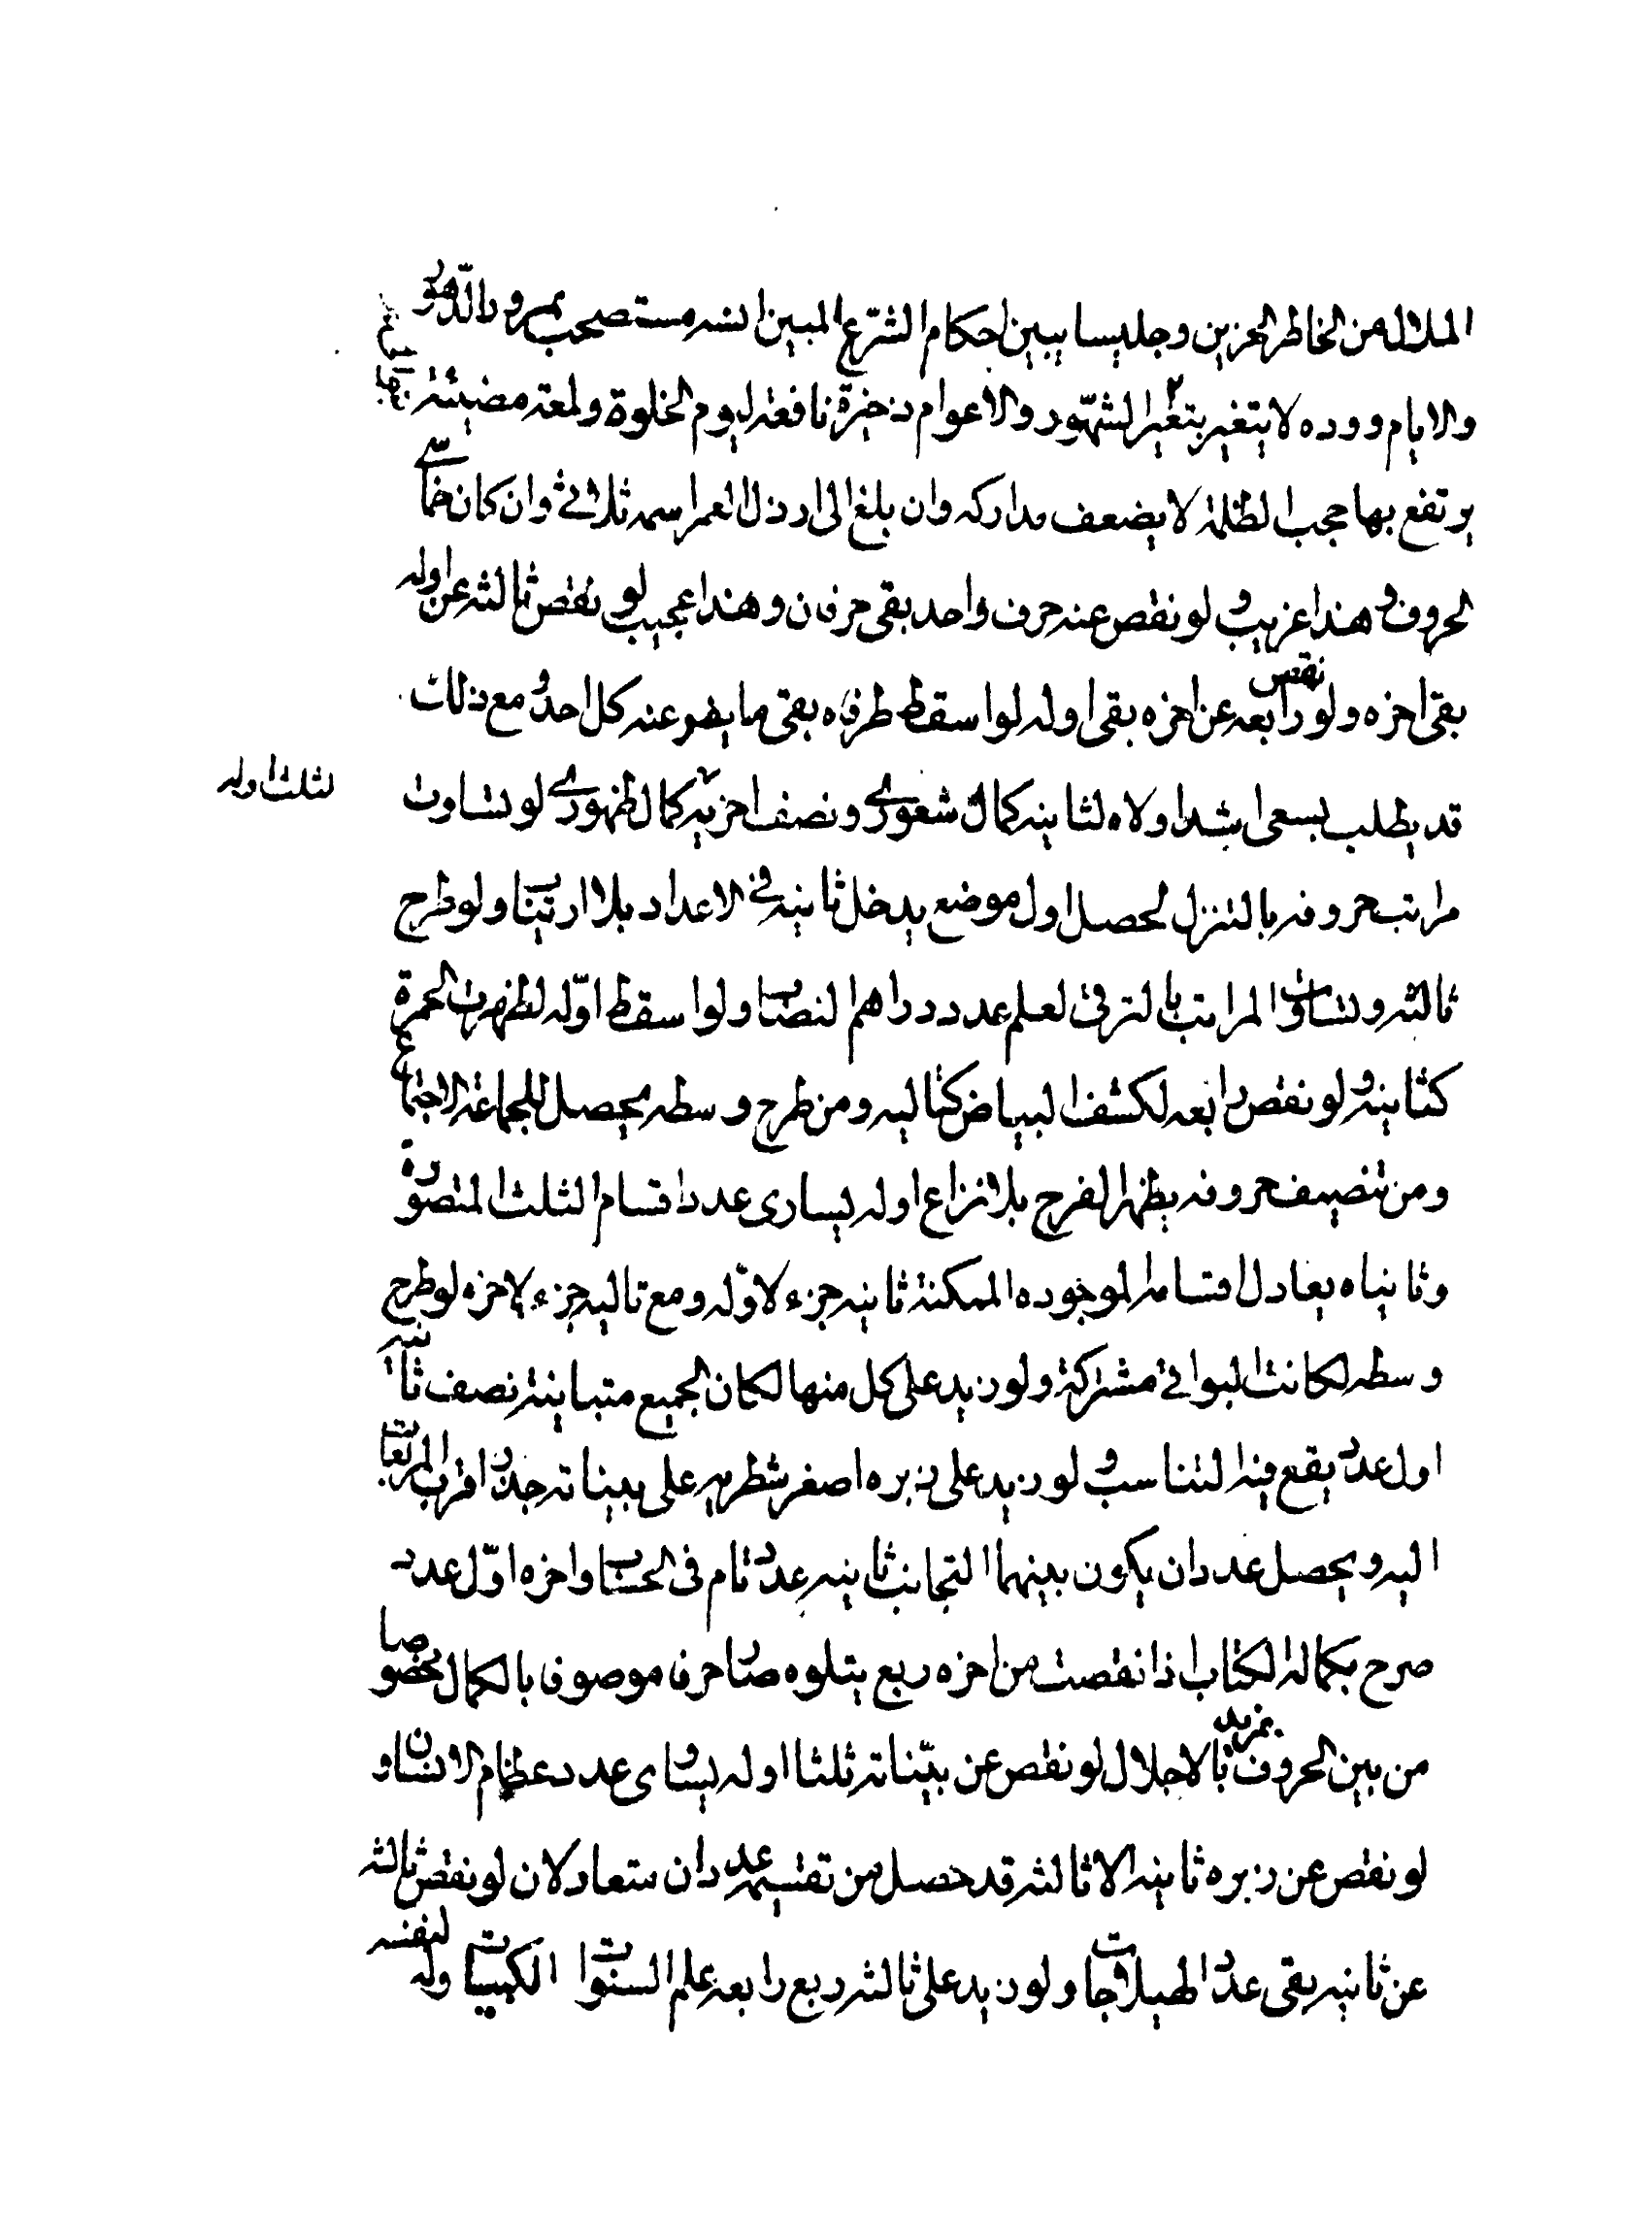 الملال من الخاطر الحزين وجليسا يبين احكام الشرع المبين انسه مستصحب بمرور الدهور
والايام ووده لا يتغير بتغير الشهور والاعوام ذخيرة نافعة ليوم الخلوة ولمعة مضيئة
يرتفع بها حجب الظلمة لا يضعف مداركه وان بلغ الى ارذل العمر اسمه ثلاثي وان كان خماسي
الحروف وهذا غريب ولو نقص عنه حرف واحد بقى حرفان وهذا عجيب لو نقص ثالثه عن اوله
بقى اخره ولو نقص رابعه عن اخره بقى اوله لو اسقط طرفاه بقى ما يفر عنه كل احد ومع ذلك
قد يطلب بسعى اشد اولاه لثانيه كمال شعورى ونصف اخريه كمال ظهورى لو تساوت
لثلث اوله
مراتب حروفه بالتنزل لحصل اول موضع يدخل ثانيه فى الاعداد بلا ارتياب ولو طرح
ثالثه وتساوت المراتب بالترقى لعلم عدد دراهم النصاب ولو اسقط اوله لظهرت الحمرة
كثانيه ولو نقص رابعه لكشف البياض كتاليه ومن طرح وسطه يحصل للجماعة الاجتماع
ومن تنصيف حروفه يظهر الفرج بلا نزاع اوله يساوى عدد اقسام الثلث المتصورة
وثانياه يعادل اقسامه الموجوده الممكنة ثانيه جزء لاوله ومع تاليه جزء لاخره لو طرح
وسطه لكانت البواقى مشتركة ولو زيد على كل منها لكان الجميع متباينة نصف ثانيه
اول عدد يقع فيه التناسب ولو زيد على زبره اصغر شطريه على بيناته جذر اقرب المربعات
اليه ويحصل عددان يكون بينهما التجانب ثانيه عدد تام فى الحساب واخره اول عدد
صرح بكماله الكتاب اذا نقصت من اخره ربع يتلوه صار حرفا موصوفا بالكمال مخصوصا
من بين الحروف بمزيد الاجلال لو نقص عن بيناته ثلثا اوله يساوى عدد عظام الانسان و
لو نقص عن زبره ثانيه الا ثالثه قد حصل من تقسيمه عددان متعادلان لو نقص ثالثه
عن ثانيه بقى عدد الهيلاجات ولو زيد على ثالثه ربع رابعه علم السنوات الكبيسات وله لنفسه